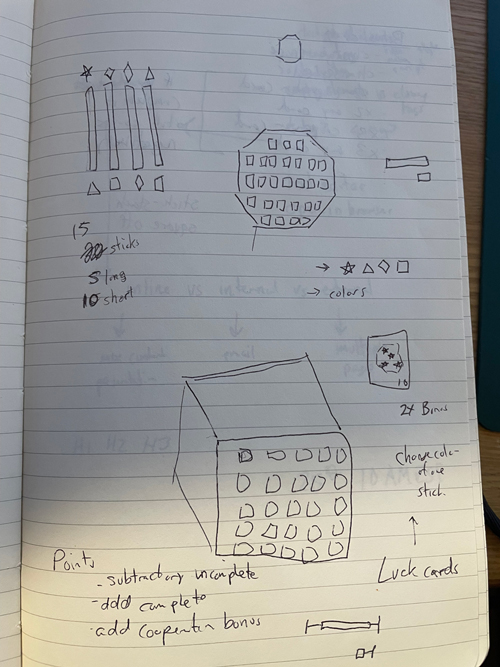 15
sticks
5 long
10 short
→ colors
10
2x Bonus
change color
of one
stick.
Luck cards
Points
- subtract incomplete
- add complete
- add cooperation bonus